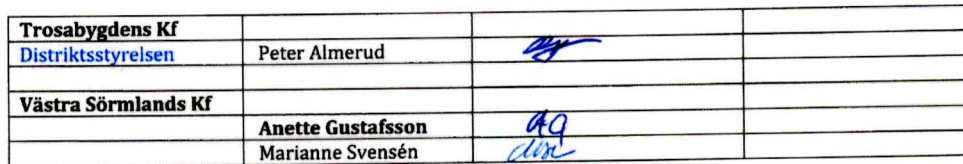 Trosabygdens Kf
Distriktsstyrelsen Peter Almerud
Västra Sörmlands Kf
Anette Gustafsson AG
Marianne Svensén